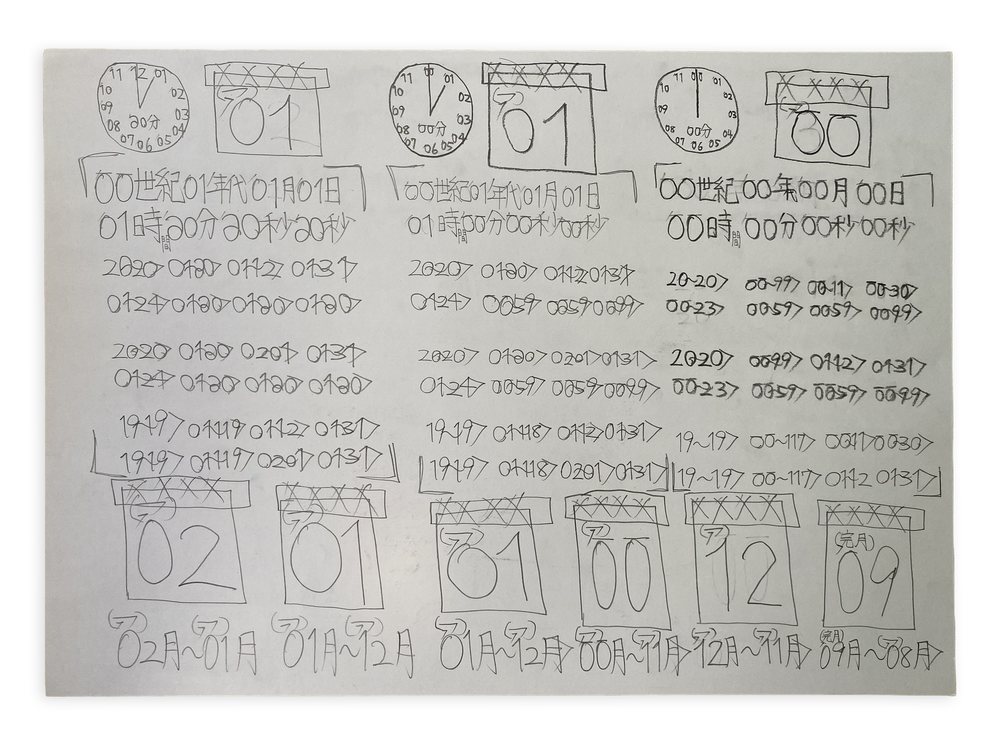 11 12 01 10 02 09 03 08 04 07 06 05 20分
01
11 00 01 10 02 09 03 08 04 07 06 05 00分
01
11 00 01 10 02 09 03 08 04 07 06 05 00分
00
「00世紀01年代01月01日」
01時間20分20秒20秒
2020> 0120> 0112> 0131>
0124> 0120> 0120> 0120>
2020> 0120> 0201> 0131>
0124> 0120> 0120> 0120>
1919> 01119 0112> 0131>
1919> 01119 0201> 0131>
「00世紀01年代01月01日」
01時間00分00秒00秒
2020> 0120> 0112> 0131>
0124> 0059> 0059> 0099>
2020> 0120> 0201> 0131>
0124> 0059> 0059> 0099>
1919> 01118> 0112> 0131>
1919> 01118> 0201> 0131>
「00世紀00年00月00日」
00時間00分00秒00秒
20-20> 00-99> 00-11> 00-30>
00-23> 00-59> 00-59> 00-99>
2020> 0099> 0112> 0131>
00-23> 00-59> 00-59> 00-99>
19~19> 00~117> 0011> 0030>
19~19> 00~117> 0112 0131>
02
01
01
00
12
(完月)
09
02月~01月
01月~12月
01月~12月>
00月~11月>
12月~11月>
(完月)
09月~08月>